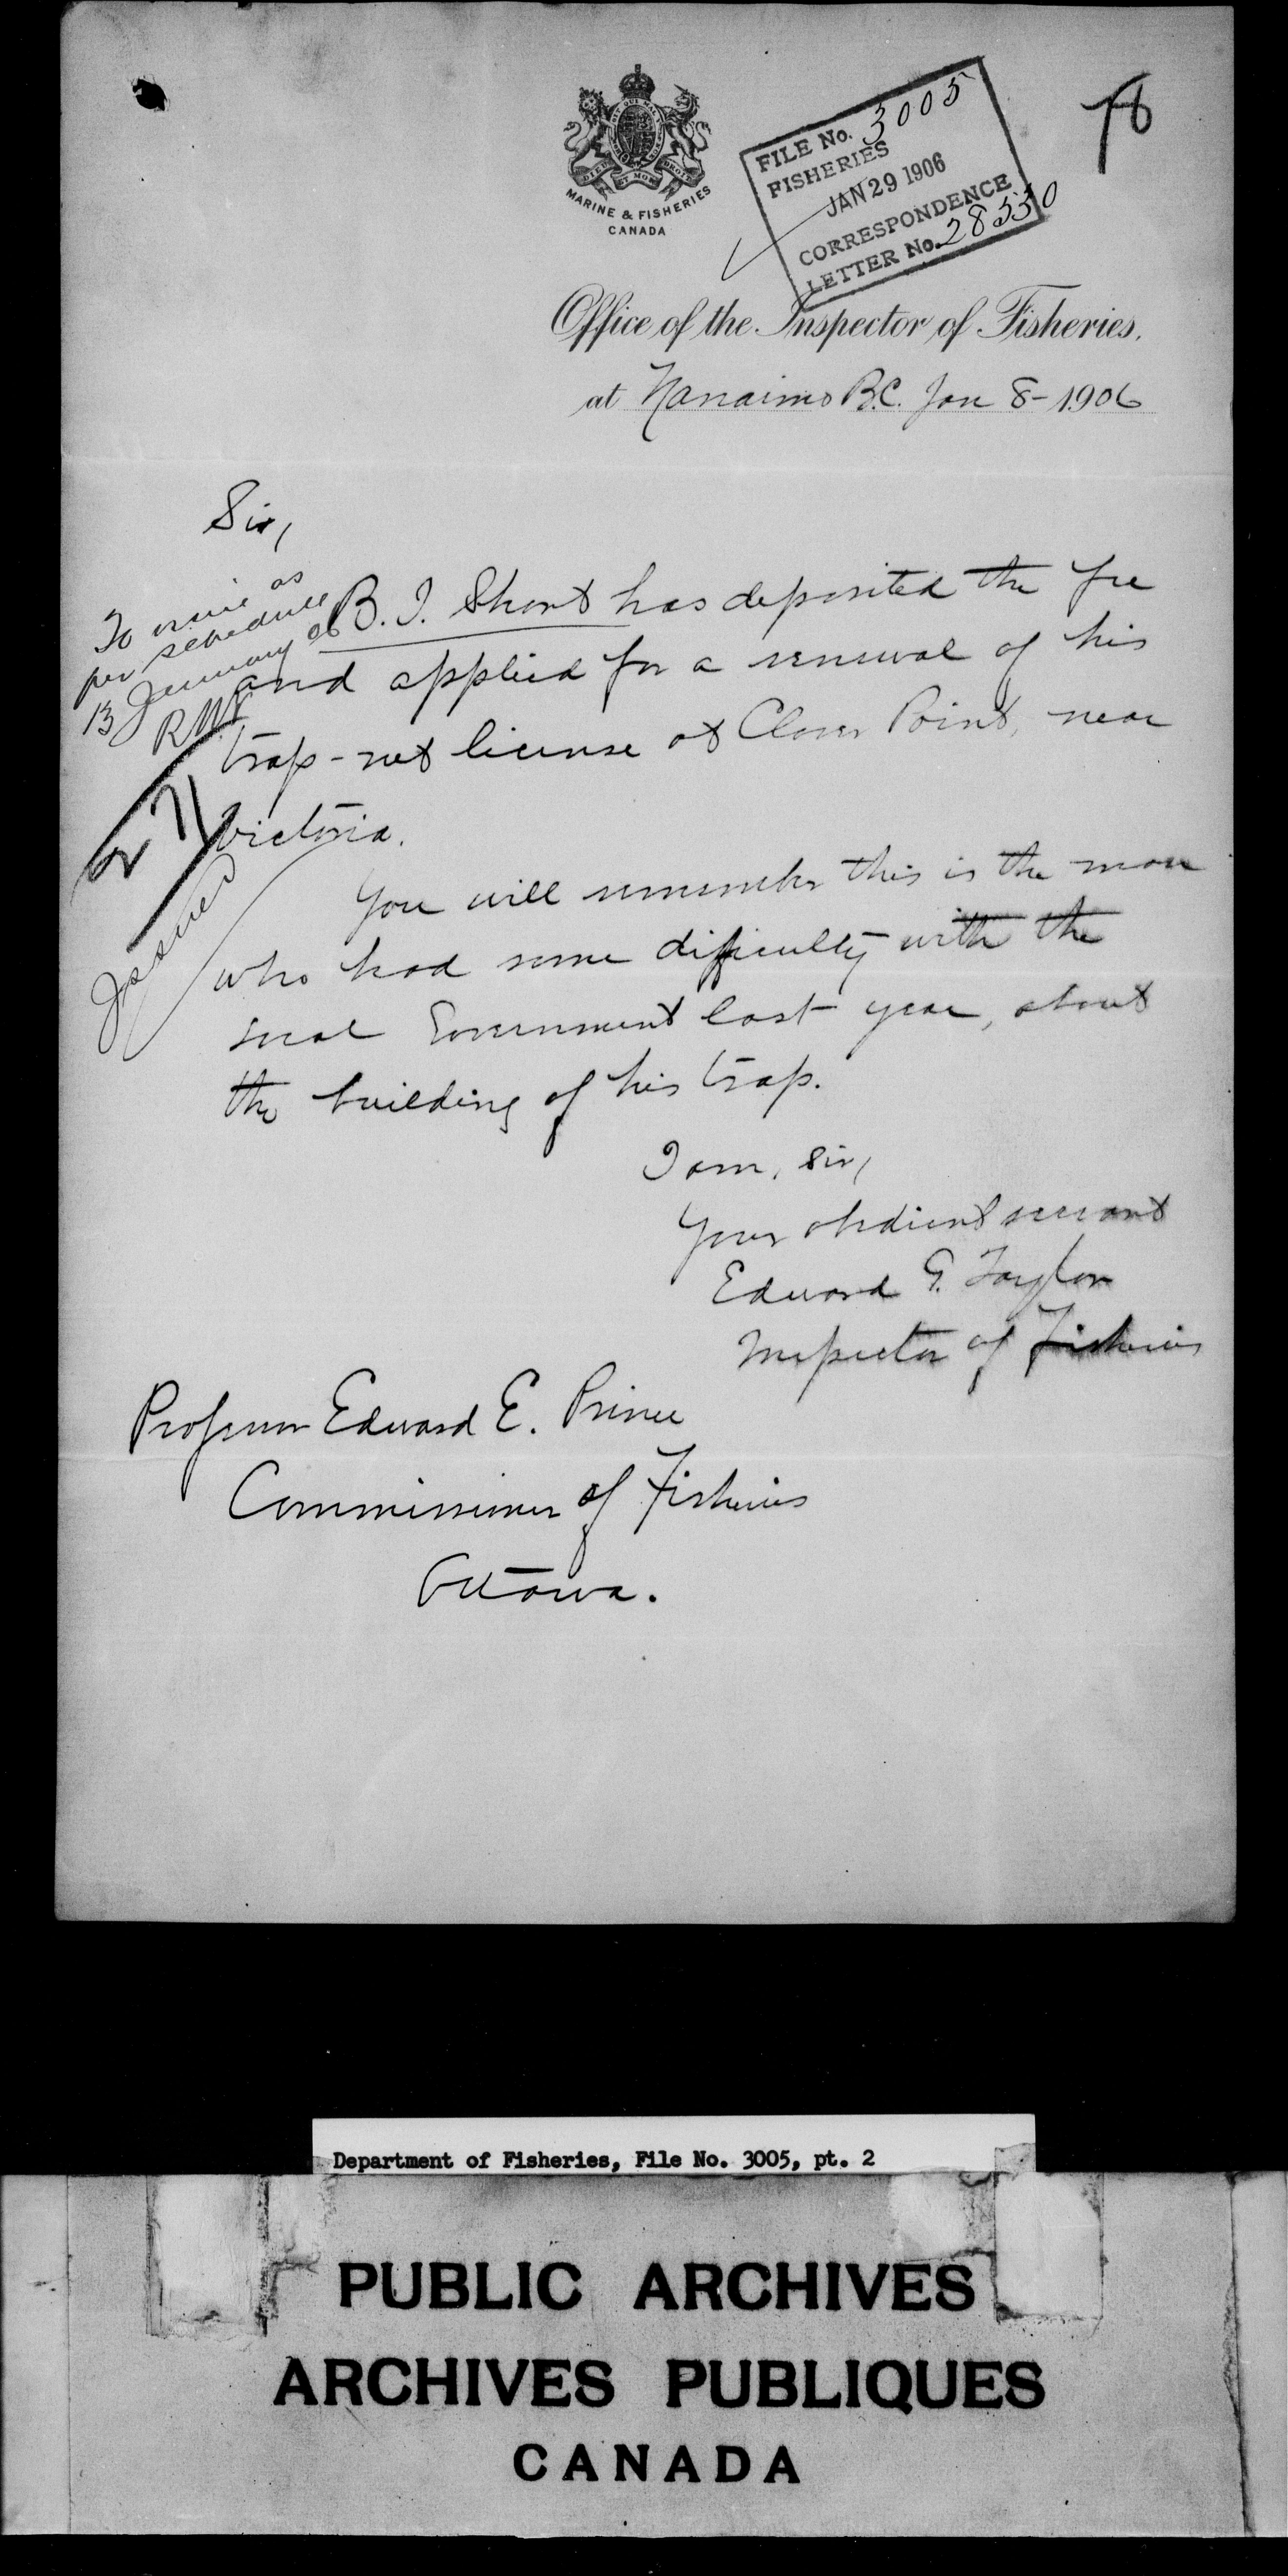 78
FILE No. 3005
FISHERIES
JAN 29 1906
CORRESPONDENCE
LETTER No. 28550
DIEU ET MON DROIT
MARINE & FISHERIES
CANADA
Office of the Inspector of Fisheries.
at Nanaimo B.C. Jan 8 - 1906
Sir,
To issue as
per schedule
13 January 06
B. J. Short has deposited the fee
and applied for a renewal of his
trap-net license at Clover Point, near
Victoria.
Issued
You will remember this is the man
who had some difficulty with the
local Government last year, about
the building of his trap.
I am, Sir,
Your obedient servant
Edward G. Taylor
Inspector of Fisheries
Professor Edward E. Prince
Commissioner of Fisheries
Ottawa.
Department of Fisheries, File No. 3005, pt. 2
PUBLIC ARCHIVES
ARCHIVES PUBLIQUES
CANADA